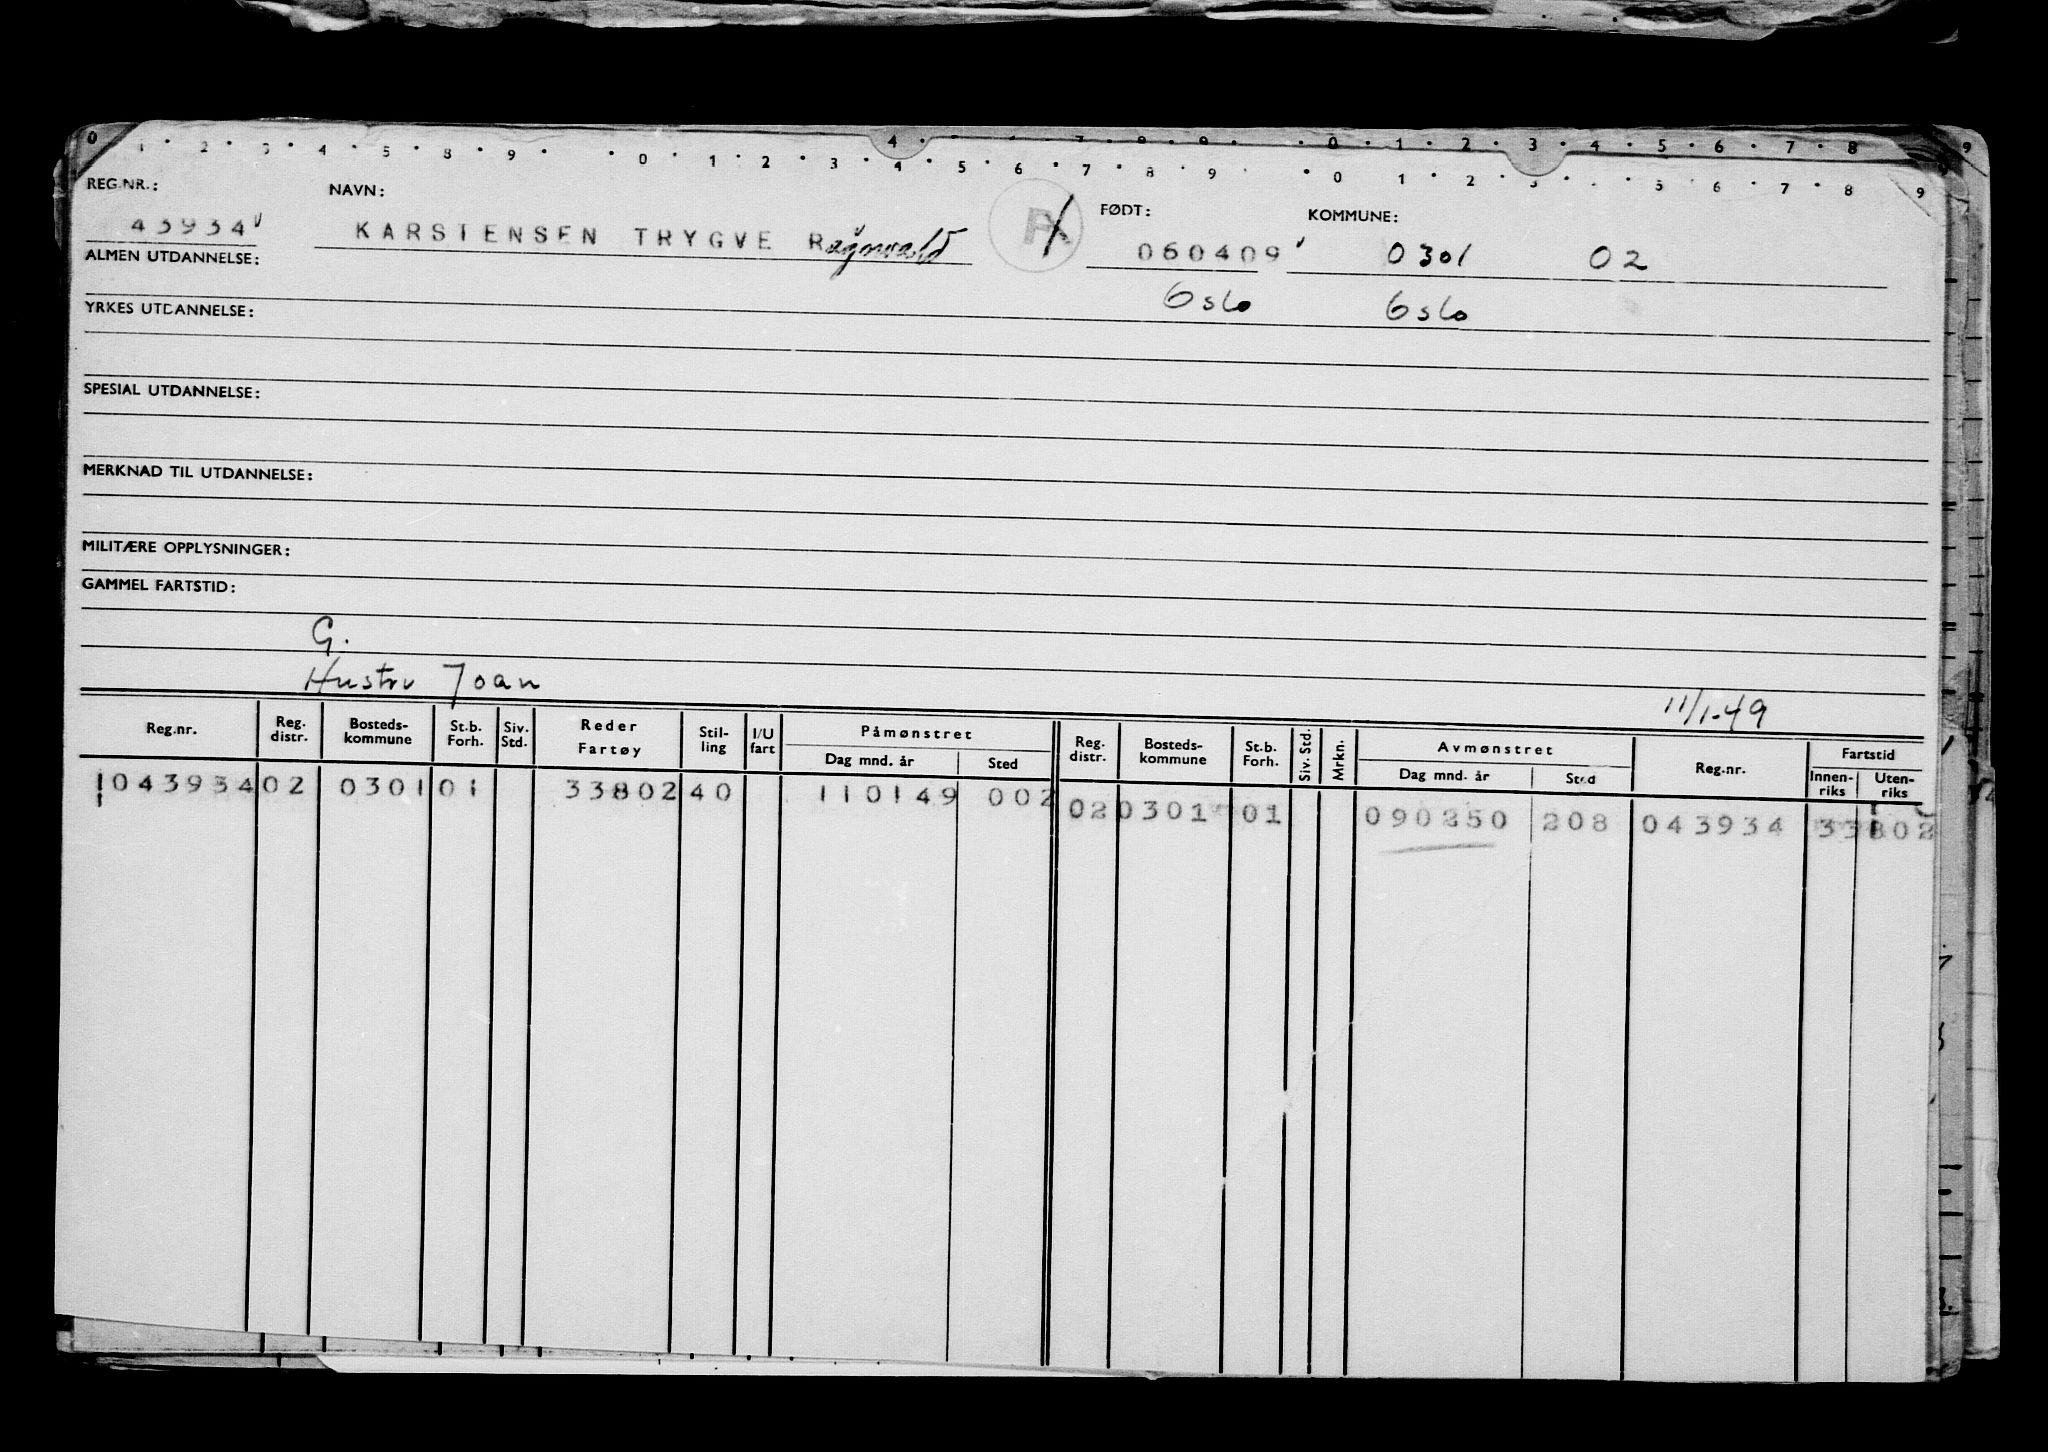 0 1 2 3 4 5 8 9 0 1 2 3 4 5 6 7 8 9 0 1 2 3 4 5 6 7 8 9
REG.NR.: NAVN: FØDT: KOMMUNE:
43934 KARSTENSEN TRYGVE Ragnvald 060409 0301 02
ALMEN UTDANNELSE:
Oslo Oslo
YRKES UTDANNELSE:
SPESIAL UTDANNELSE:
MERKNAD TIL UTDANNELSE:
MILITÆRE OPPLYSNINGER:
GAMMEL FARTSTID:
G.
Hustru Joan
11/1-49
Reg.nr. Reg. distr. Bosteds-kommune St.b. Forh. Siv. Std. Reder Fartøy Stil-ling I/U fart Påmønstret Dag mnd. år Sted Reg. distr. Bosteds-kommune St.b. Forh. Siv. Std. Mrkn. Avmønstret Dag mnd. år Sted Reg.nr. Fartstid Innen-riks Uten-riks
043934 02 0301 01 33802 40 110149 002 02 0301 01 090250 208 043934 33802